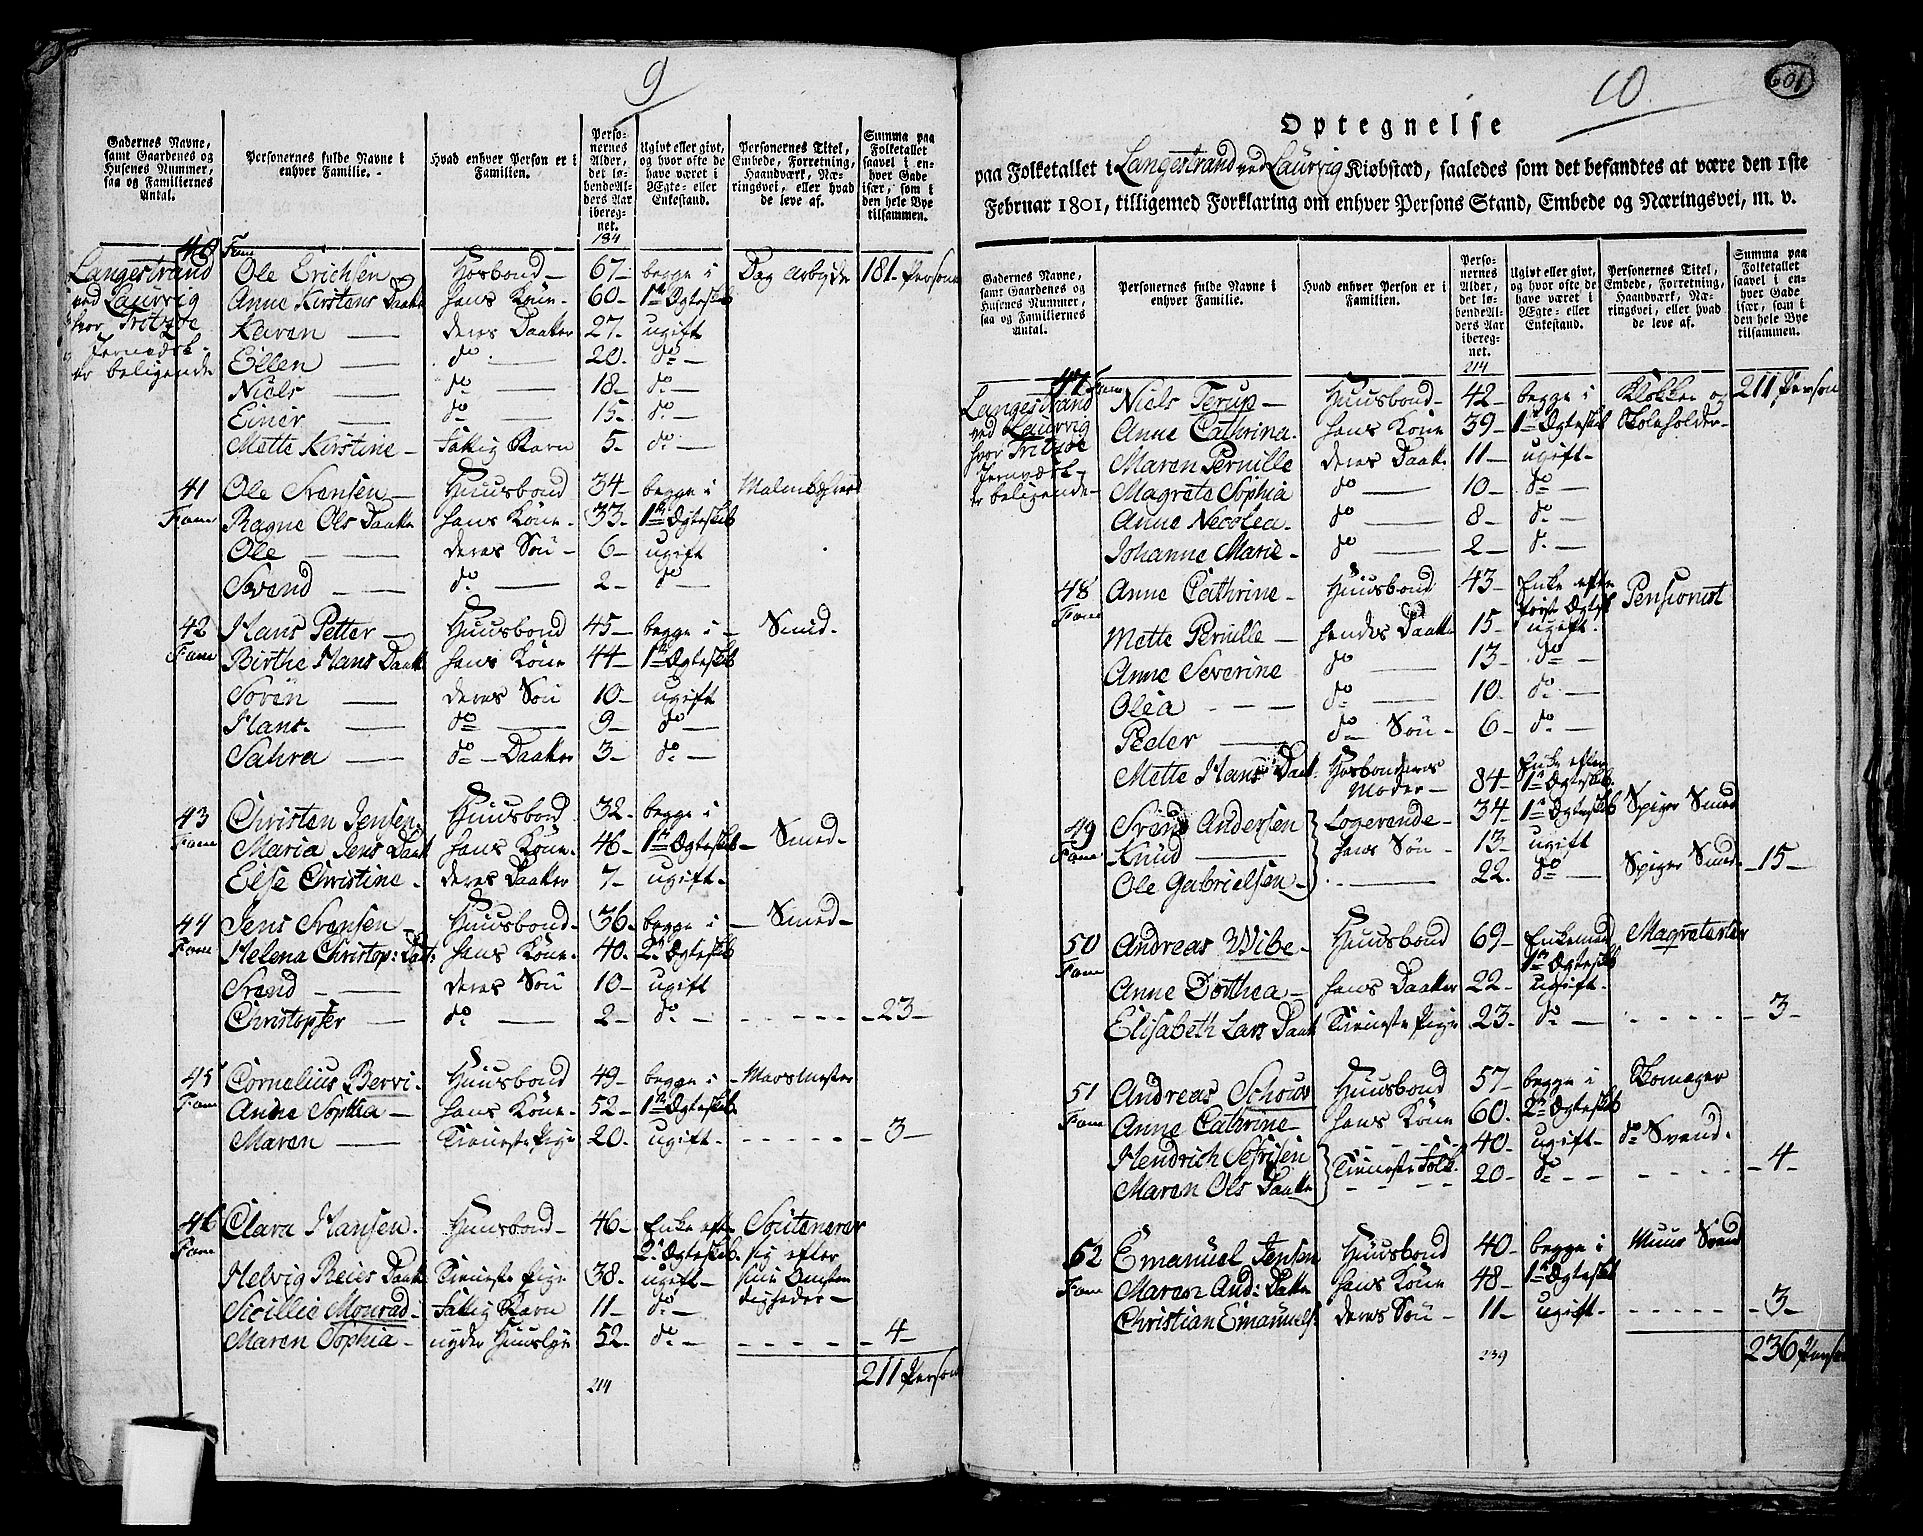 9
Gadernes Navne, samt Gaardenes og Husenes Nummer, saa og Familiernes Antal.
Personernes fulde Navne i enhver Familie.
Hvad enhver Person er i Familien.
Personernes Alder, det løbende Alders Aar iberegnet.
Ugivt eller givt, og hvor ofte de have været i Ægte- eller Enkestand.
Personernes Titel, Embede, Forretning, Haandværk, Næringsvei, eller hvad de leve af.
Summa paa Folketallet saavel i enhver Gade især, som i den hele Bye tilsammen.
184
Langestrand ved Laurvig hvor Fritzøe Jernværk er beligende
40 Fam Ole Erichsen Hosbond 67 begge i Dag Arbyde 181 Person
Anne Kirstans Daatt hans Kone 60 1te Ægteskb
Karen deres Daatter 27 ugift
Ellen do 20 do
Niels do 18 do
Einer do 15 do
Mette Kirstine Fattig Barn 5 do
41 Fam Ole Svensen Huusbond 34 begge i
Ragne Ols Daatt hans Kone 33 1te Ægteskb
Ole deres Søn 6 ugift
Svend do 2 do
42 Fam Hans Petter Huusbond 45 begge i Smed
Birthe Hans Daatt hans Kone 44 1te Ægteskb
Søren deres Søn 10 ugift
Hans do 9 do
Sahra do Daatter 3 do
43 Fam Christen Jensen Huusbond 32 begge i
Maria Jens Daatt hans Kone 46 1te Ægteskb Smed
Else Christine deres Daatter 7 ugift
44 Fam Jens Svensen Huusbond 36 begge i Smed
Helena Christop: Datt: hans Kone 40 2t Ægteskb
Svend deres Søn 10 ugift
Christopfer do 2 do 23
45 Fam Cornelius Bervi Huusbond 49 begge i Masmester
Anne Sophia hans Kone 52 1te Ægteskb
Maren Tieneste Pige 20 ugift 3
46 Fam Clara Hansen Huusbond 46 Enke eft 2t Ægteskb Soutenerer
Helvig Reiers Daatt Tieneste Pige 38 ugift sig efter
Sicillie Monrad Fattig Barn 11 do sine Omstendigheder
Maren Sophia nyder Huuslye 52 do 4
214 211 Person
10
601
Optegnelse
paa Folketallet i Langestrand ved Laurvig Kiøbstæd, saaledes som det befandtes at være den 1ste
Februar 1801, tilligemed Forklaring om enhver Persons Stand, Embede og Næringsvei, m. v.
Gadernes Navne, samt Gaardenes og Husenes Nummer, saa og Familiernes Antal.
Personernes fulde Navne i enhver Familie.
Hvad enhver Person er i Familien.
Personernes Alder, det løbende Alders Aar iberegnet.
Ugivt eller givt, og hvor ofte de have været i Ægte- eller Enkestand.
Personernes Titel, Embede, Forretning, Haandværk, Næringsvei, eller hvad de leve af.
Summa paa Folketallet saavel i enhver Gade især, som i den hele Bye tilsammen.
214
Langestrand ved Laurvig hvor Fritzøe Jernværk er beligende
47 Fam Niels Terup Huusbond 42 begge i Klokker og 211 Person
Anne Cathrina hans Kone 39 1te Ægteskb Skoleholder
Maren Pernille deres Daatt 11 ugift
Magrete Sophia do 10 do
Anne Necolea do 8 do
Johanne Marie do 2 do
48 Fam Anne Cathrine Huusbond 43 Enke efter første Ægtesk Pensionist
Mette Pernille hendes Daatter 15 ugift
Anne Severine do 13 do
Olea do 10 do
Peder do Søn 6 do
Mette Hans Daat Hosbonderes Moder 84 Enke efter 1te Ægteskb
49 Fam Svend Andersen Logerende 34 1te Ægteskb Spiger Smed
Knud hans Søn 13 ugift
Ole Gabrielsen 22 do Spiger Smed 15
50 Fam Andreas Wibe Huusbond 69 Enkemand 1te Ægteskb
Anne Dorthea hans Daatter 22 ugift
Elisabeth Lars Daatt Tieneste Pige 23 do 3
51 Fam Andreas Schouv Huusbond 57 begge i Skomager
Anne Cathrine hans Kone 60 2t Ægteskb
Hendrich Sefrisen 40 ugift do Svend
Maren Ols Daatt Tieneste Folk 20 do 4
52 Fam Emanuel Jensen Huusbond 40 begge i Muur Svend
Maren And: Datter hans Kone 48 1te Ægteskb
Christian Emanuels: deres Søn 11 ugift 3
239 236 Person